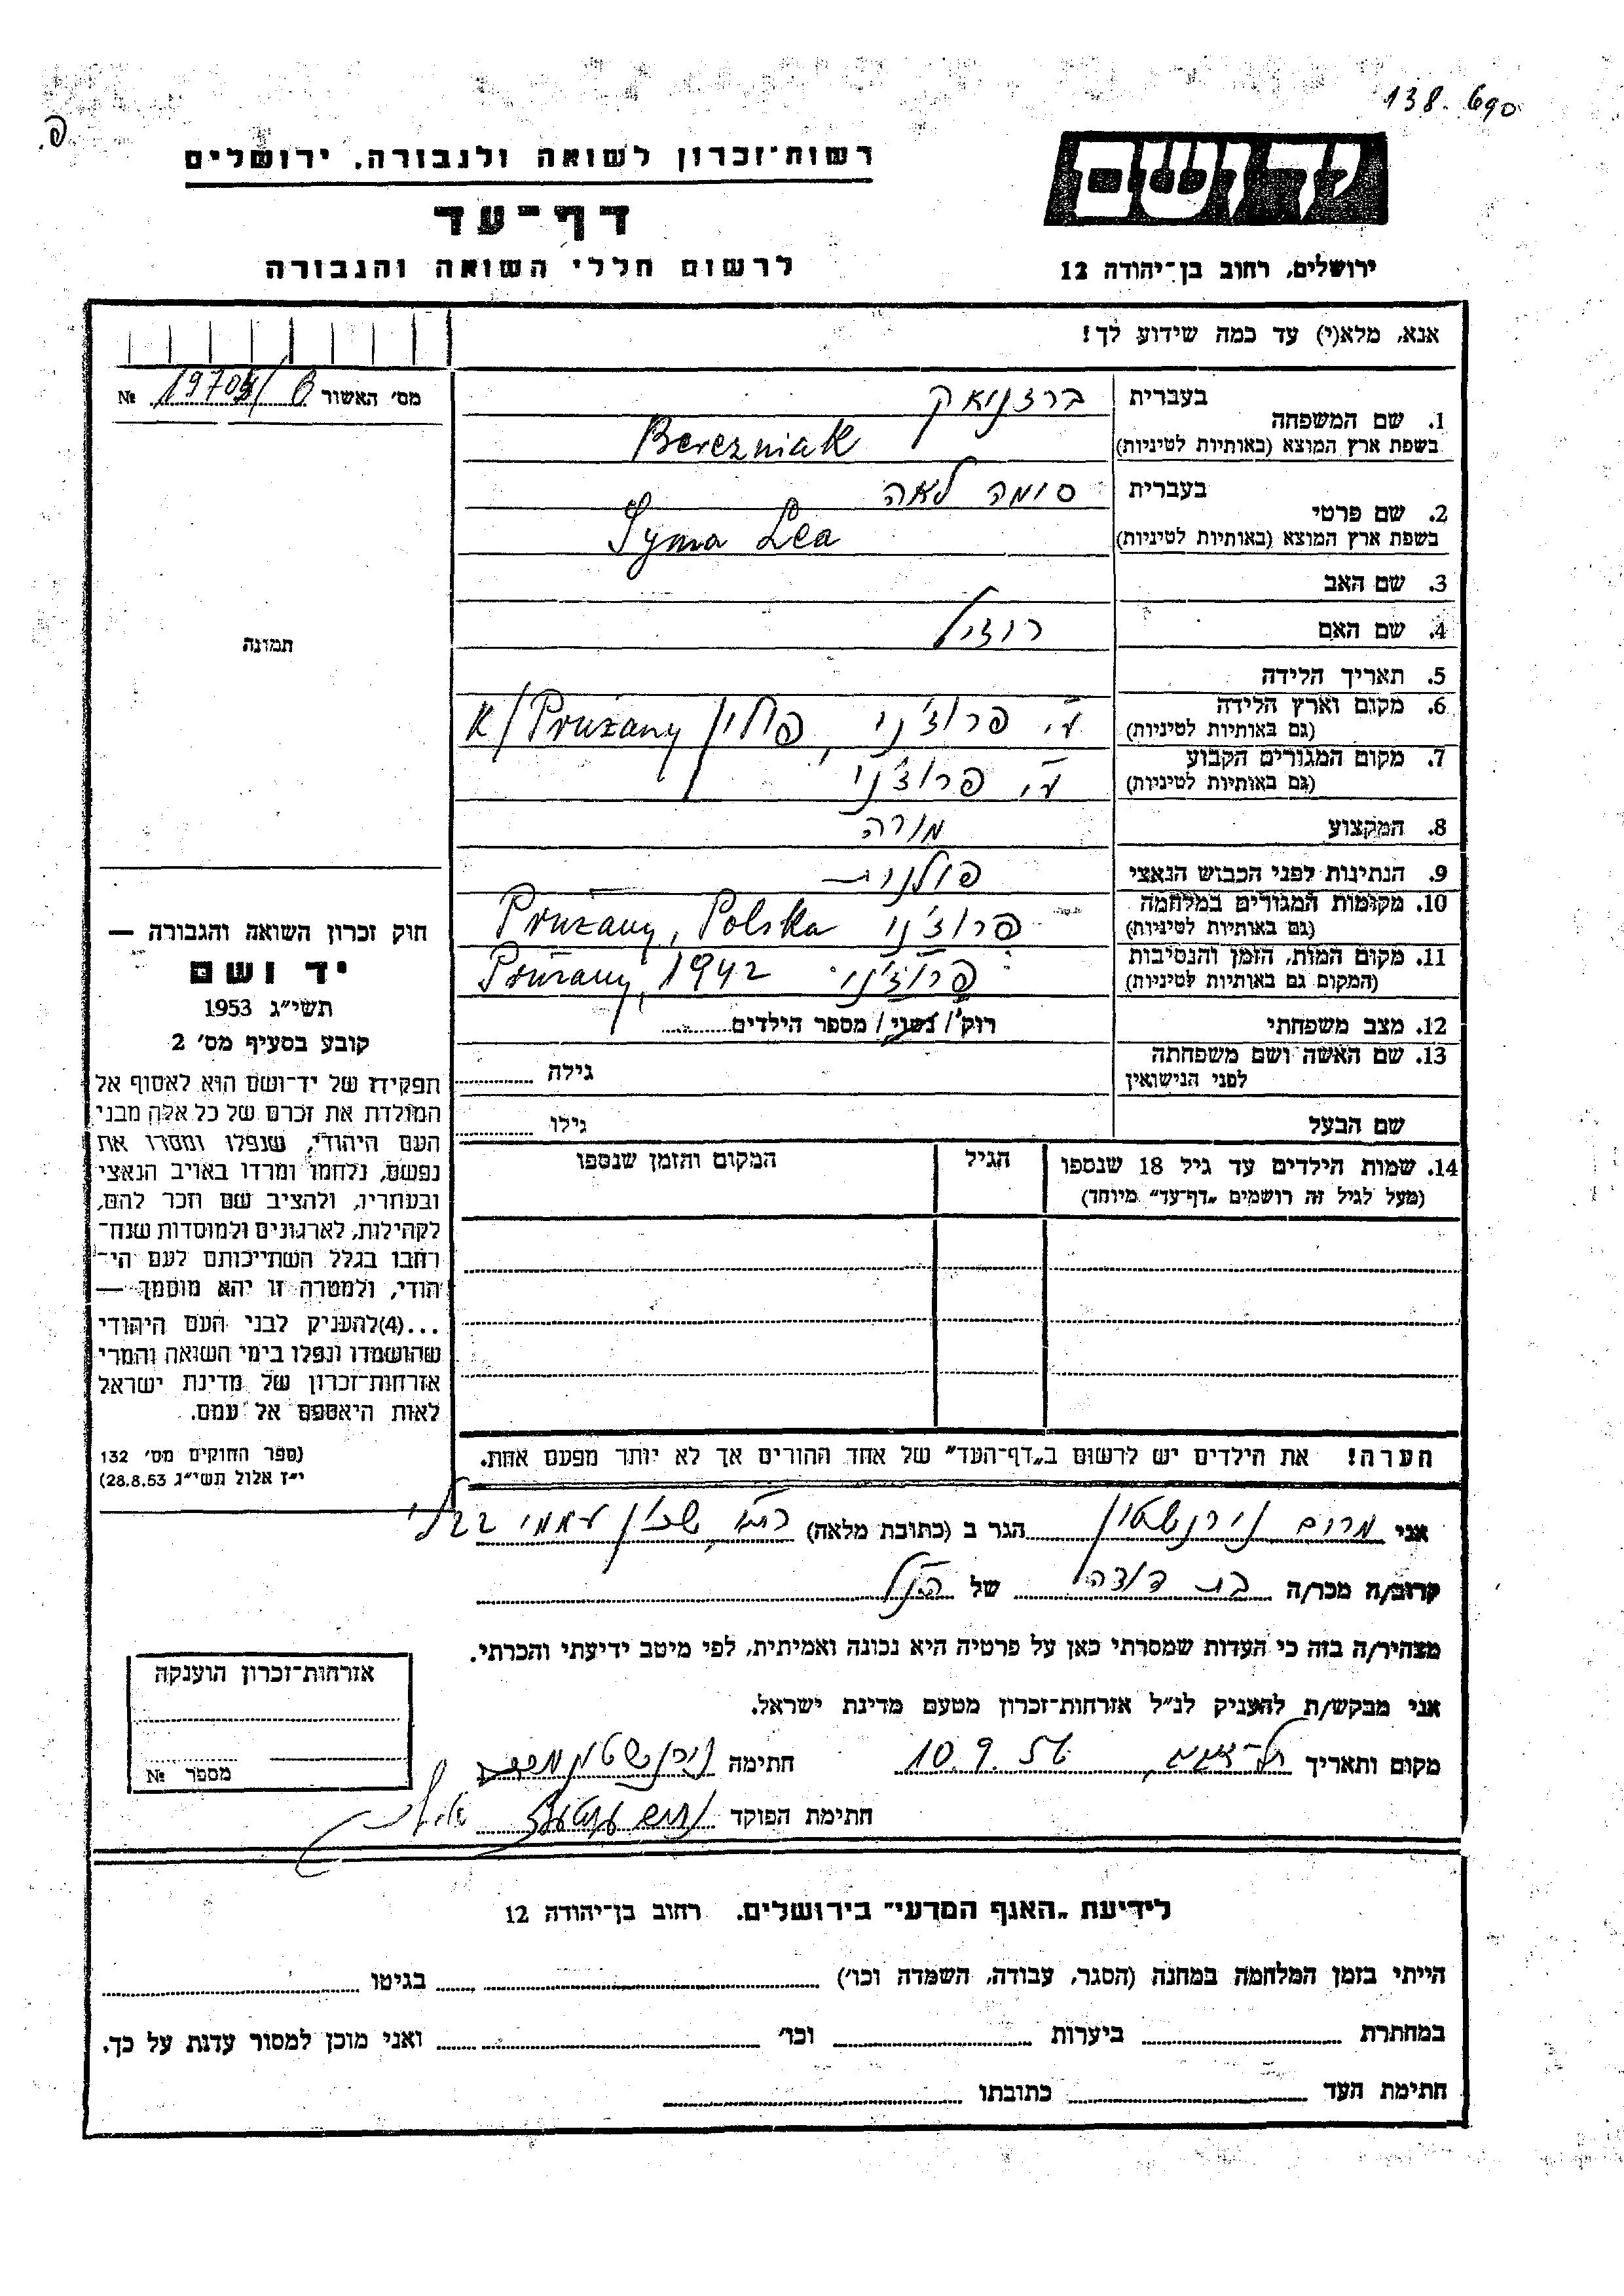 138.690
פ.
יד ושם
רשות־זכרון לשואה ולגבורה, ירושלים
דף־עד
לרשום חללי השואה והגבורה
ירושלים, רחוב בן־יהודה 12
אנא, מלא(י) עד כמה שידוע לך!
מס׳ האשור №
1. שם המשפחה בעברית ברזניאק
בשפת ארץ המוצא (באותיות לטיניות) Berezniak
2. שם פרטי בעברית סימה לאה
בשפת ארץ המוצא (באותיות לטיניות) Syma Lea
3. שם האב
4. שם האם רוזיל
5. תאריך הלידה
6. מקום וארץ הלידה (גם באותיות לטיניות) ע״י פרוז׳ני, פולין K/Pruzany
7. מקום המגורים הקבוע (גם באותיות לטיניות) ע״י פרוז׳ני
8. המקצוע מורה
9. הנתינות לפני הכבוש הנאצי פולנית
10. מקומות המגורים במלחמה (גם באותיות לטיניות) פרוז׳ני Pruzany, Polska
11. מקום המות, הזמן והנסיבות (המקום גם באותיות לטיניות) פרוז׳ני Pruzany, 1942
12. מצב משפחתי רוק / נשוי / מספר הילדים
13. שם האשה ושם משפחתה לפני הנישואין גילה
שם הבעל גילו
14. שמות הילדים עד גיל 18 שנספו (מעל לגיל זה רושמים „דף־עד” מיוחד)
הגיל
המקום והזמן שנספו
הערה! את הילדים יש לרשום ב„דף־העד” של אחד ההורים אך לא יותר מפעם אחת.
תמונה
חוק זכרון השואה והגבורה —
יד ושם
תשי״ג 1953
קובע בסעיף מס׳ 2
תפקידו של יד־ושם הוא לאסוף אל
המולדת את זכרם של כל אלה מבני
העם היהודי, שנפלו ומסרו את
נפשם, נלחמו ומרדו באויב הנאצי
ובעוזריו, ולהציב שם וזכר להם,
לקהילות, לארגונים ולמוסדות שנח־
רחבו בגלל השתייכותם לעם הי־
הודי, ולמטרה זו יהא מוסמך —
...(4)להעניק לבני העם היהודי
שהושמדו ונפלו בימי השואה והמרי
אזרחות־זכרון של מדינת ישראל
לאות היאספם אל עמם.
(ספר החוקים מס׳ 132
י״ז אלול תשי״ג 28.8.53)
אני מרים הגר ב (כתובת מלאה) שכון עממי
קרוב/ה מכר/ה בת דודה של הנ״ל
מצהיר/ה בזה כי העדות שמסרתי כאן על פרטיה היא נכונה ואמיתית, לפי מיטב ידיעתי והכרתי.
אני מבקש/ת להעניק לנ״ל אזרחות־זכרון מטעם מדינת ישראל.
מקום ותאריך 10.9.56 חתימה
חתימת הפוקד
אזרחות־זכרון הוענקה
מספר №
לידיעת „האגף המדעי” בירושלים, רחוב בן־יהודה 12
הייתי בזמן המלחמה במחנה (הסגר, עבודה, השמדה וכו׳) בגיטו
במחתרת ביערות וכו׳ ואני מוכן למסור עדות על כך.
חתימת העד כתובתו